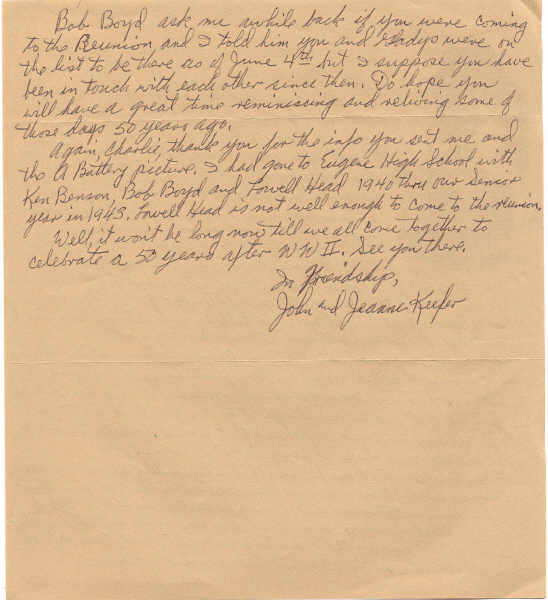 Bob Boyd ask me awhile back if you were coming
to the Reunion and I told him you and Gladys were on
the list to be there as of June 4th but I suppose you have
been in touch with each other since then. Do hope you
will have a great time reminiscing and reliving some of
those days 50 years ago.
Again, Charlie, thank you for the info you sent me and
the A Battery picture. I had gone to Eugene High School with
Ken Benson, Bob Boyd and Fowell Head 1940 thru our Senior
year in 1943. Fowell Head is not well enough to come to the reunion.
Well, it won't be long now till we all come together to
celebrate a 50 years after WW II. See you there.
In Friendship,
John and Jeanne Keefer